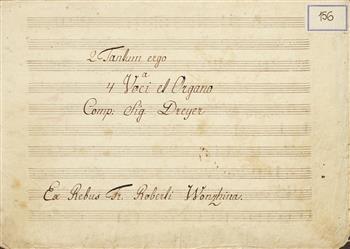 156
2 Tantum ergo
a
4 Voci et Organo
Comp: Sig Dreyer
Ex Rebus Fr. Roberti